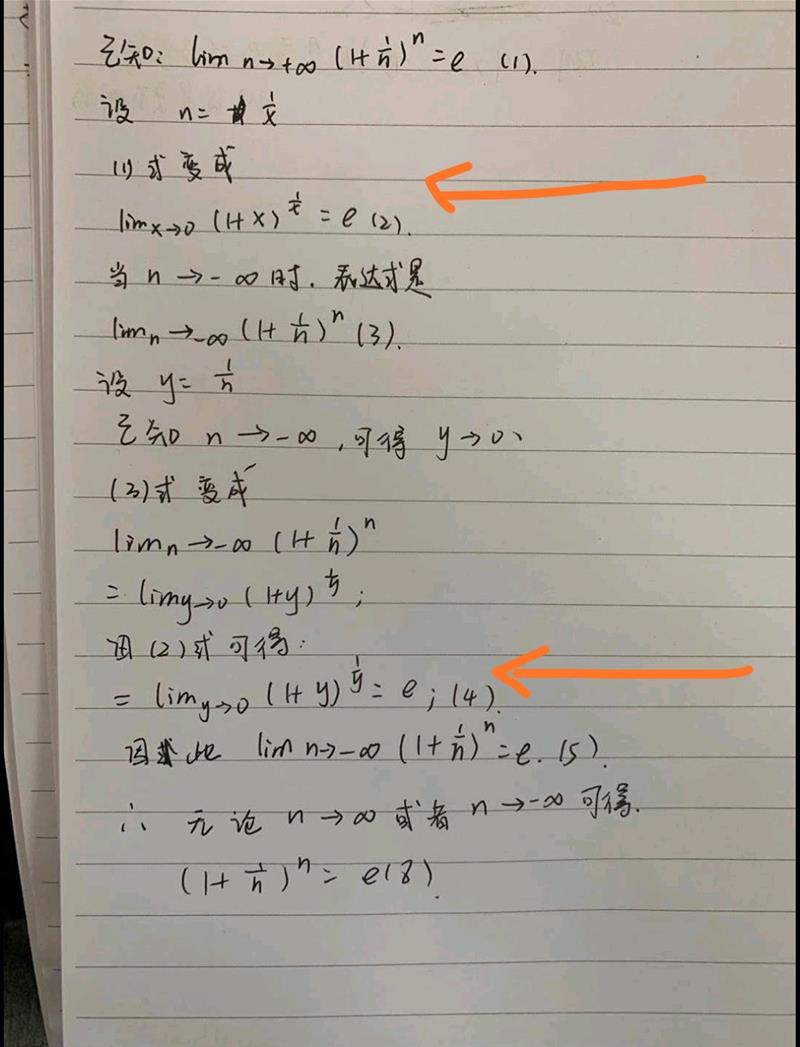 已知: lim n→+∞ (1+1/n)^n = e (1).
设 n= 1/x
(1) 式变成
lim x→0 (1+x)^1/x = e (2).
当 n→-∞ 时. 表达式是
lim n→-∞ (1+1/n)^n (3).
设 y= 1/n
已知 n→-∞, 可得 y→0、
(3)式变成
lim n→-∞ (1+1/n)^n
= lim y→0 (1+y)^1/y ;
由(2)式可得:
= lim y→0 (1+y)^1/y = e ; (4).
因此 lim n→-∞ (1+1/n)^n = e. (5).
∴ 无论 n→∞ 或者 n→-∞ 可得.
(1+1/n)^n = e(8).